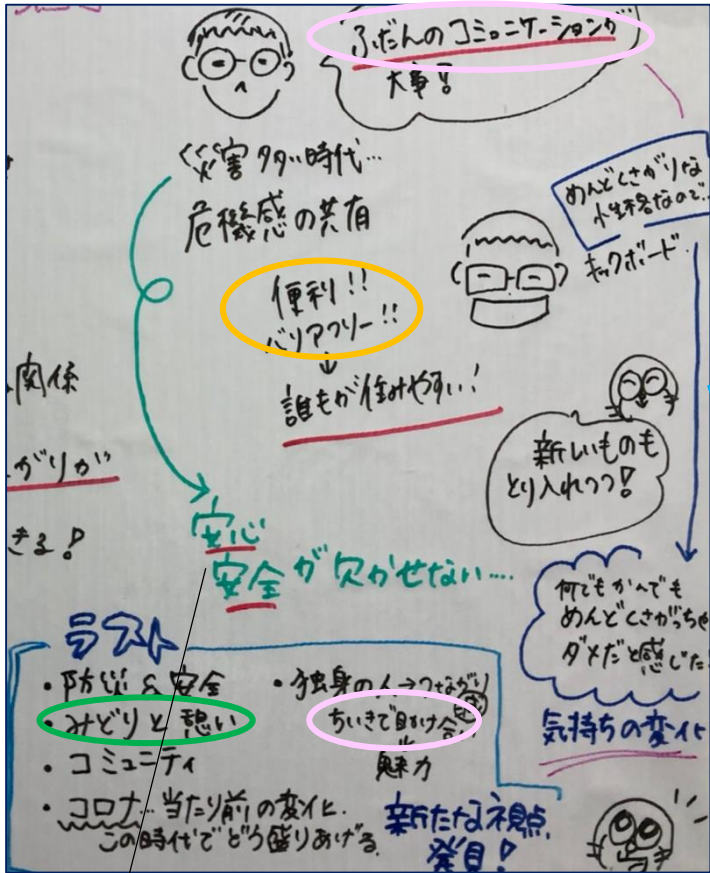 ふだんのコミュニケーションが
大事!
災害多い時代…
危機感の共有
めんどくさがりな
性格なので…
キックボード
便利!!
バリアフリー!!
↓
誰もが住みやすい!
関係
がりが
きる!
新しいものも
とり入れつつ!
安心
安全が欠かせない…
何でもかんでも
めんどくさがっちゃ
ダメだと感じた
気持ちの変化
ラスト
・防災&安全
・みどりと憩い
・コミュニティ
・コロナ…当たり前の変化
この時代でどう盛りあげる
・独身の人→つながり
ちいきで助け合い
魅力
新たな視点
発見!